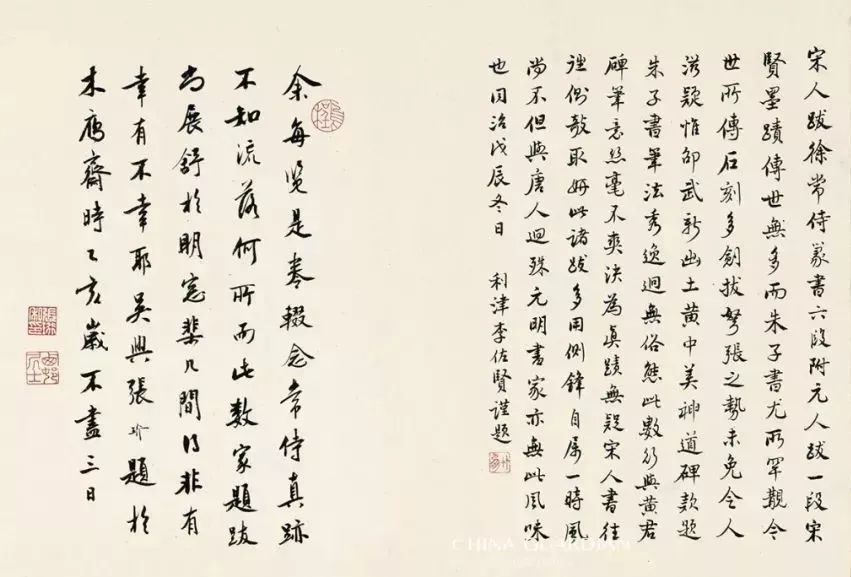 宋人跋徐常侍篆書六段附元人跋一段宋
賢墨蹟傳世無多而朱子書尤所罕觀今
世所傳石刻多劍拔弩張之勢未免令人
滋疑惟邵武新出土黄中美神道碑款題
朱子書筆法秀逸迥無俗態此數行與黄君
碑筆意丝毫不爽决為真蹟無疑宋人書往
往側敧取妍此諸跋多用側鋒自屬一時風
尚不但與唐人迥殊元明書家亦無此風味
也同治戊辰冬日 利津李佐賢謹題
余每覽是卷輟念常侍真跡
不知流落何所而此数家題跋
尚展舒於明窓棐几間得非有
幸有不幸耶吳興張珩題於
木雁齋時乙亥歲不盡三日
CHINA GUARDIAN